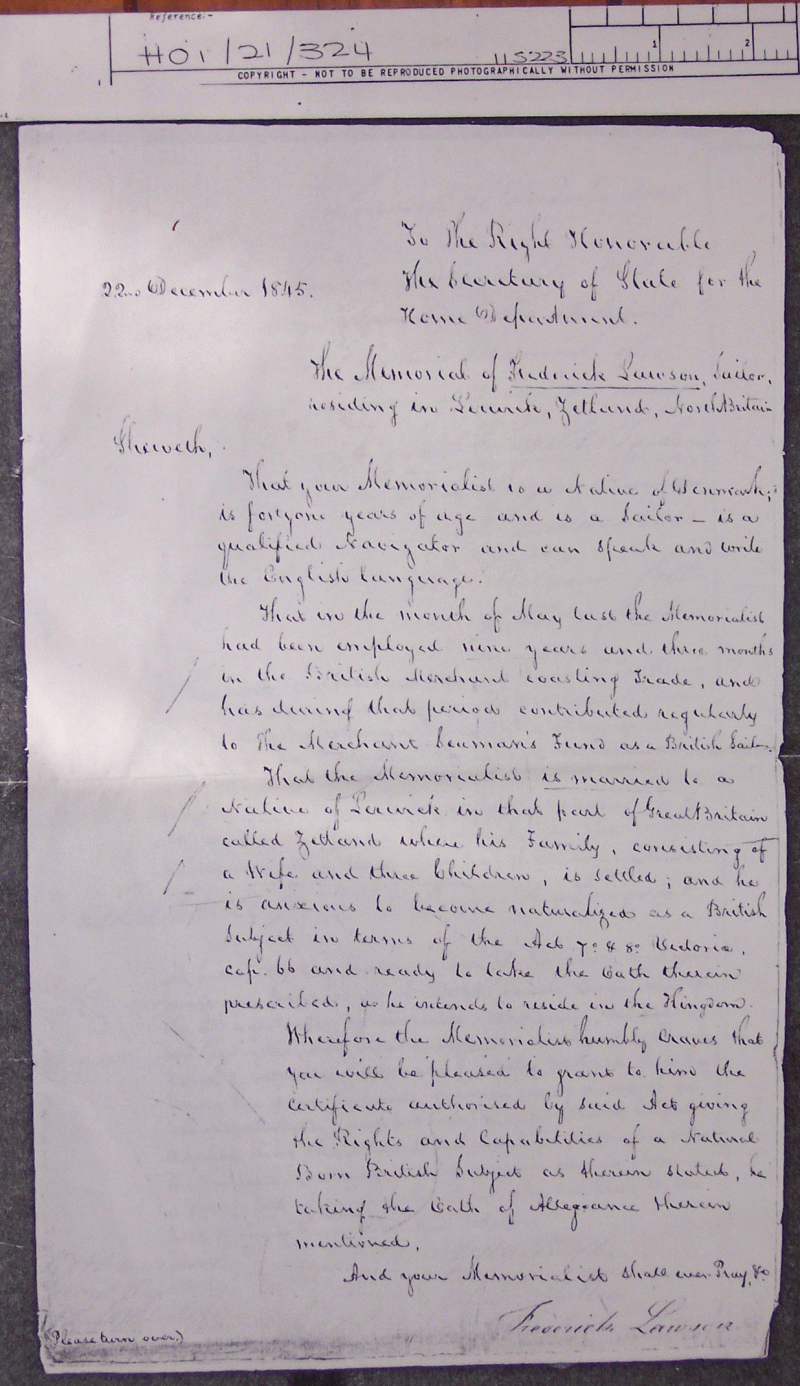 Reference:-
HO 1/21/324
115223
1
2
COPYRIGHT - NOT TO BE REPRODUCED PHOTOGRAPHICALLY WITHOUT PERMISSION
22nd December 1845.
To The Right Honorable
The Secretary of State for the
Home Department.
The Memorial of Frederick Lawson, Sailor,
residing in Lerwick, Zetland, North Britain
Sheweth,
That your Memorialist is a Native of Denmark;
is fortyone years of age and is a Sailor – is a
qualified Navigator and can speak and write
the English language.
That in the month of May last the Memorialist
had been employed nine years and three months
in the British Merchant coasting Trade, and
has during that period contributed regularly
to The Merchant Seaman's Fund as a British Sailor.
That the Memorialist is married to a
Native of Lerwick in that part of Great Britain
called Zetland where his Family, consisting of
a Wife and three Children, is settled; and he
is anxious to become naturalized as a British
Subject in terms of the Act 7o & 8o Victoria,
cap. 66 and ready to take the Oath therein
prescribed, as he intends to reside in the Kingdom.
Wherefore the Memorialist humbly Craves that
you will be pleased to grant to him the
Certificate authorised by said Act giving
the Rights and Capabilities of a Natural
Born British Subject as therein stated, he
taking the Oath of Allegiance therein
mentioned.
And your Memorialist shall ever Pray, &c
Frederick Lawson
(Please turn over.)